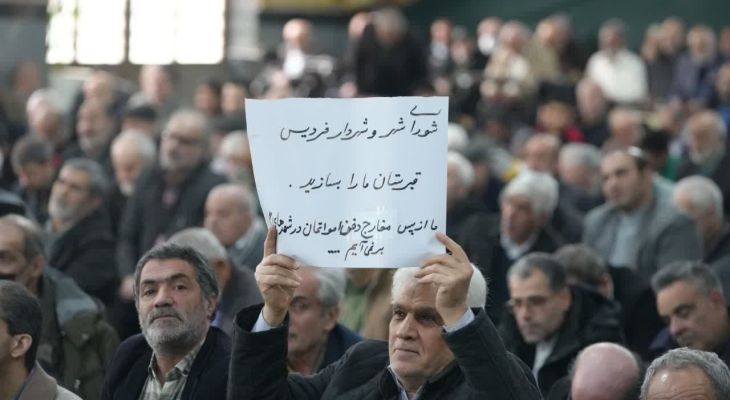 شورای شهر و شهردار فردیس
قبرستان ما را بسازید .
ما از پس مخارج دفن امواتمان در شهرهای
بر نمی آییم ....